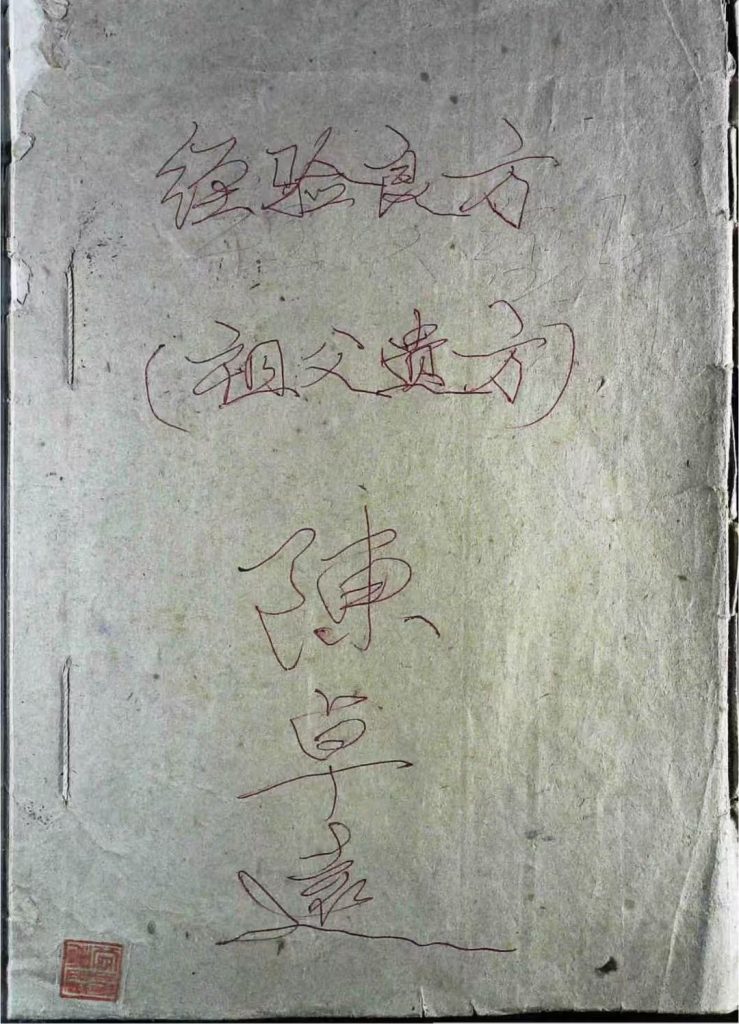 经验良方
(祖父贵方)
陳卓遠